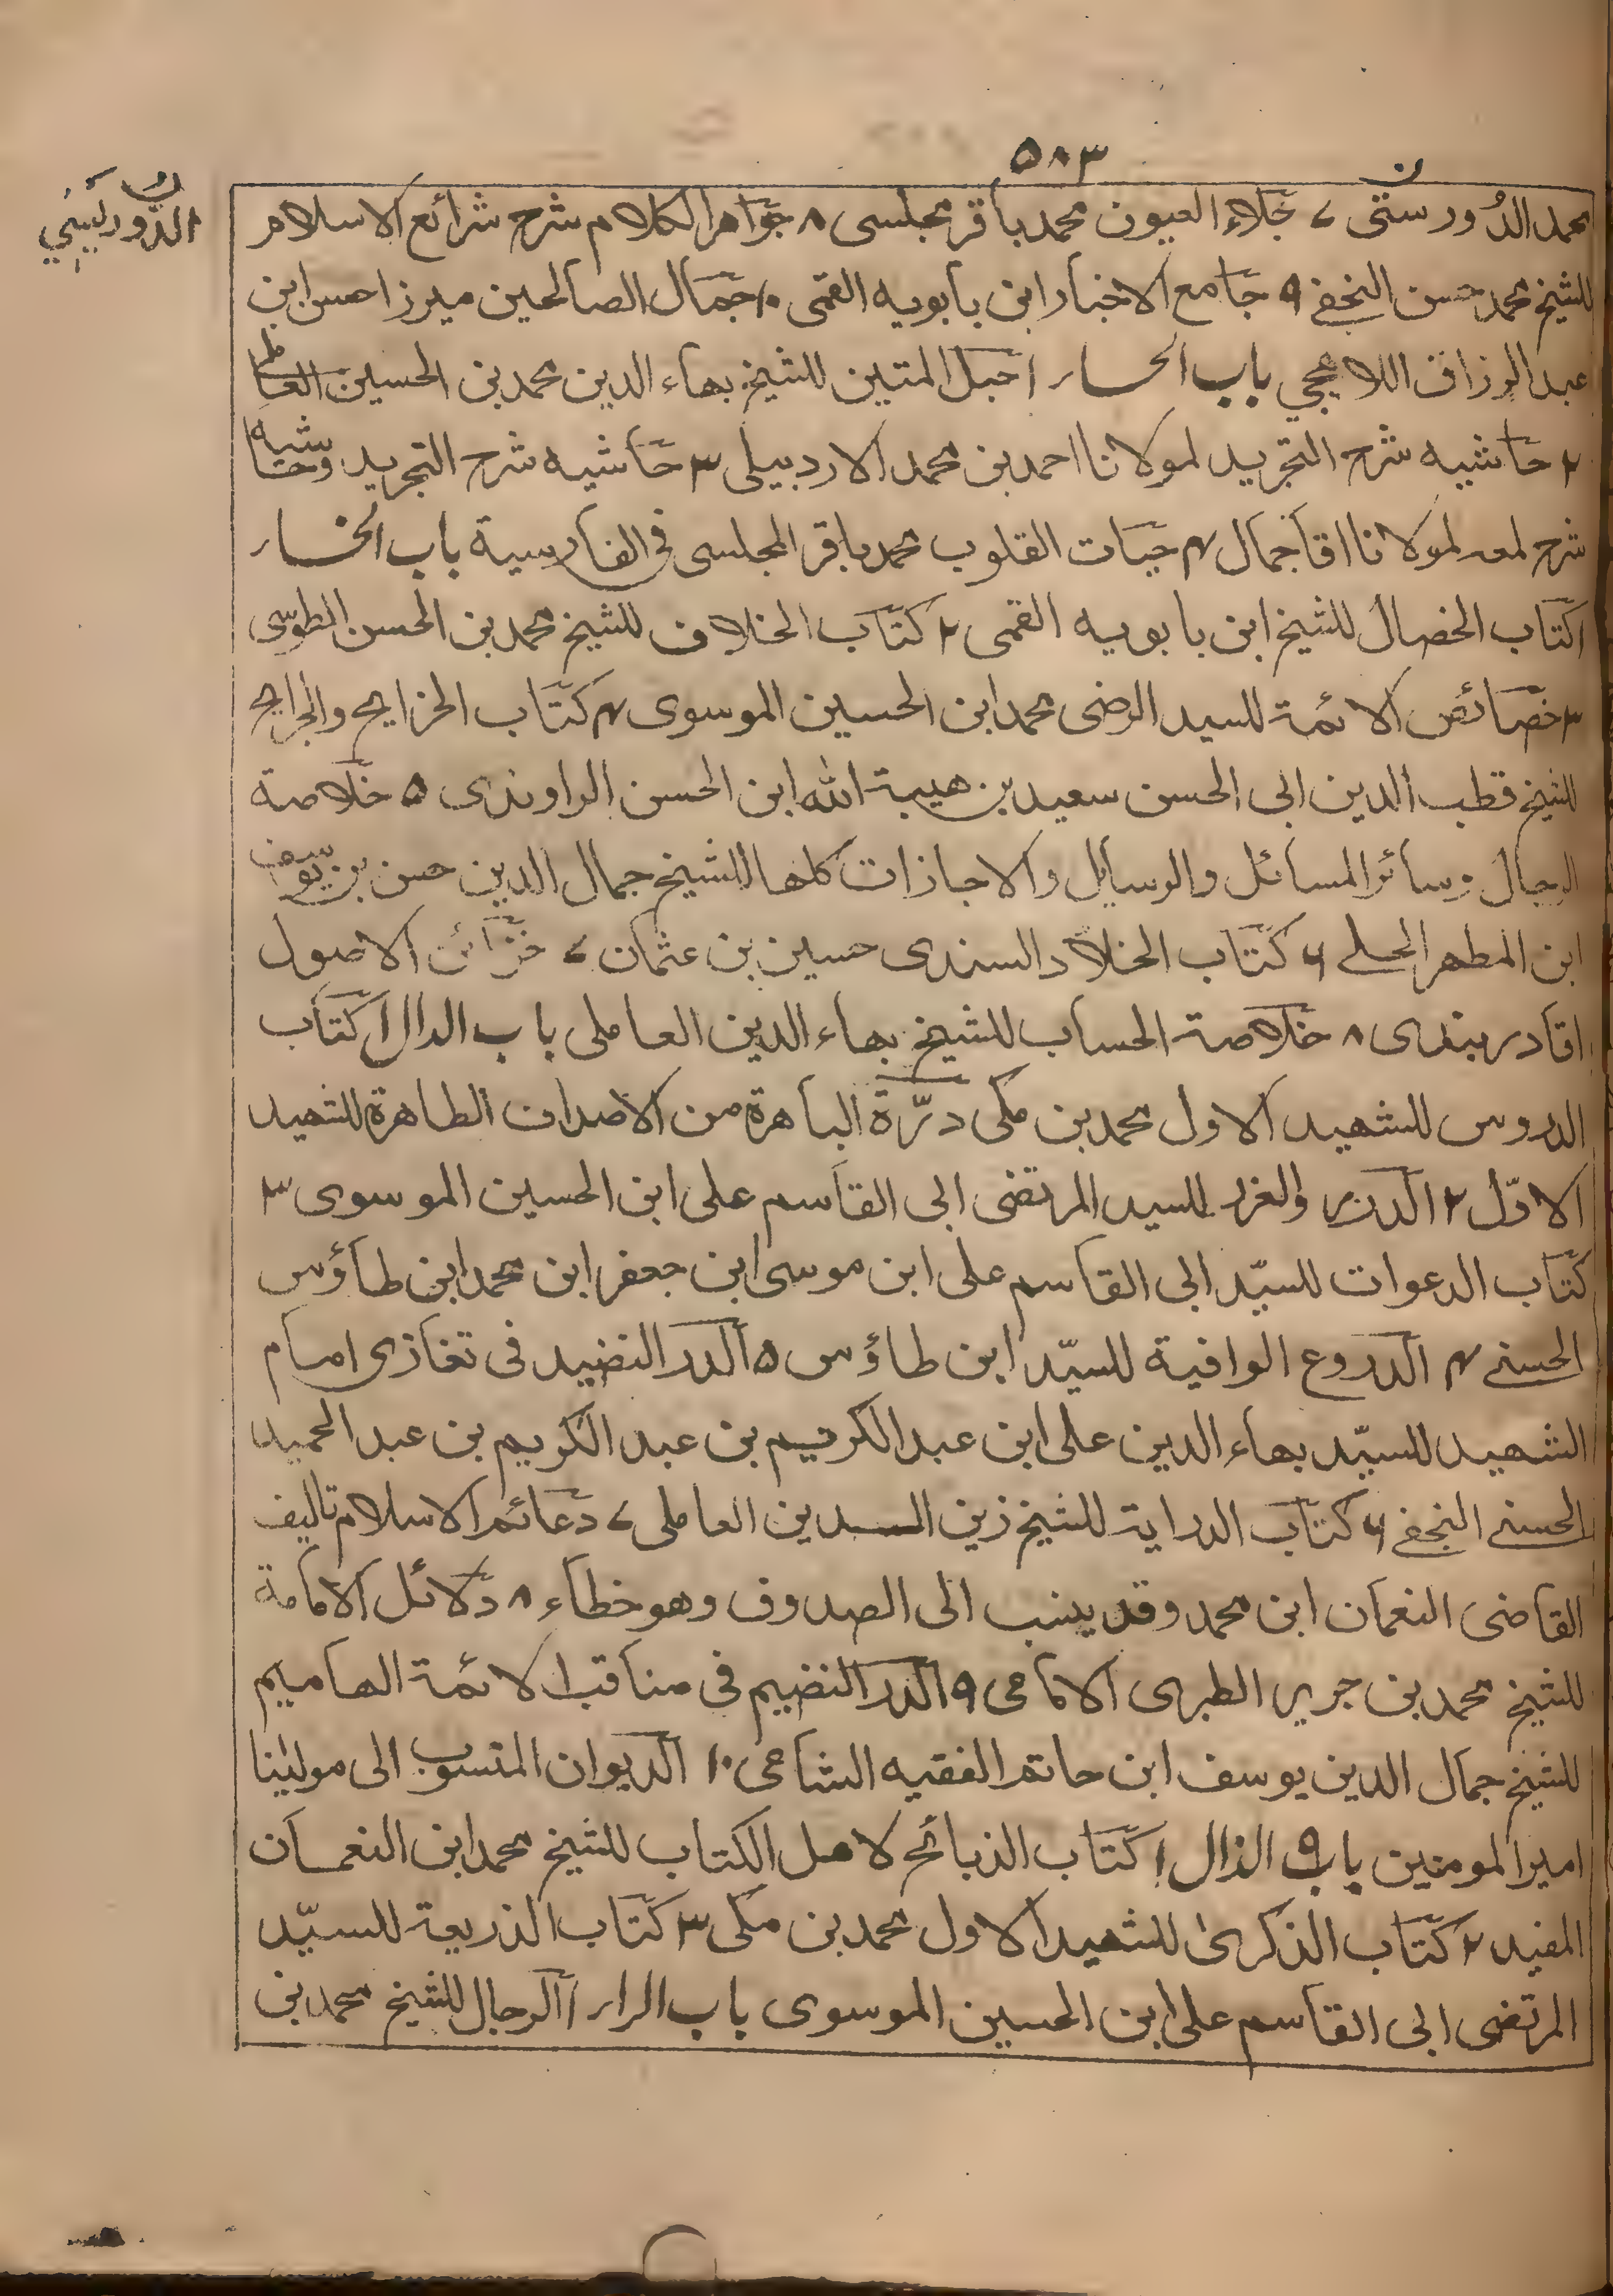 ۵۸۳
محمد الدُورستی ۷ جلاء العیون محمد باقر مجلسی ۸ جواهر الکلام شرح شرائع الاسلام
الدُّوریَسِتِي
للشیخ محمد حسن النجفے ۹ جامع الاخبار ابن بابویه القمی ۱۰ جمال الصالحین میرزا حسن ابن
عبد الرزاق اللاهجی باب الحاء ۱ حبل المتین للشیخ بهاء الدین محمد بن الحسین العاملی
۲ حاشیه شرح التجرید لمولانا احمد بن محمد الاردبیلی ۳ حاشیه شرح التجرید وحاشیه
شرح لمعه لمولانا اقا جمال ۴ حیات القلوب محمد باقر المجلسی فی الفارسیة باب الخاء
۱ کتاب الخصال للشیخ ابن بابویه القمی ۲ کتاب الخلاف للشیخ محمد بن الحسن الطوسی
۳ خصائص الائمة للسید الرضی محمد ابن الحسین الموسوی ۴ کتاب الخرایج والجرایح
للشیخ قطب الدین ابی الحسن سعید بن هیبة الله ابن الحسن الراوندی ۵ خلاصة
الرجال وسائر المسائل والرسایل والاجازات کلها للشیخ جمال الدین حسن بن یوسف
ابن المطهر الحلے ۶ کتاب الخلاد السندی حسین بن عثمان ۷ خزائن الاصول
اقا دربندی ۸ خلاصة الحساب للشیخ بهاء الدین العاملی باب الدال ۱ کتاب
الدروس للشهید الاول محمد بن مکی درّة الباهرة من الاصداف الطاهرة للشهید
الاوّل ۲ الدرر والغرر للسید المرتضی ابی القاسم علی ابن الحسین الموسوی ۳
کتاب الدعوات للسیّد ابی القاسم علی ابن موسی ابن جعفر ابن محمد ابن طاؤس
الحسنے ۴ الدروع الوافیة للسیّد ابن طاؤس ۵ الدر النضید فی تغازی امام
الشهید للسیّد بهاء الدین علی ابن عبد الکریم بن عبد الکریم بن عبد الحمید
الحسنے النجفے ۶ کتاب الدرایة للشیخ زین الدین العاملی ۷ دعائم الاسلام تالیف
القاضی النعمان ابن محمد وقد ینسب الی الصدوق وهو خطاء ۸ دلائل الامامة
للشیخ محمد بن جریر الطبری الامامی ۹ الدر النضیم فی مناقب الائمة الهامیم
للشیخ جمال الدین یوسف ابن حاتم الفقیه الشامی ۱۰ الدیوان المنسوب الی مولینا
امیر المومنین باب الذال ۱ کتاب الذبائح لاهل الکتاب للشیخ محمد ابن النعمان
المفید ۲ کتاب الذکریٰ للشهید الاول محمد بن مکی ۳ کتاب الذریعة للسیّد
المرتضی ابی القاسم علی ابن الحسین الموسوی باب الراء ۱ الرجال للشیخ محمد بن